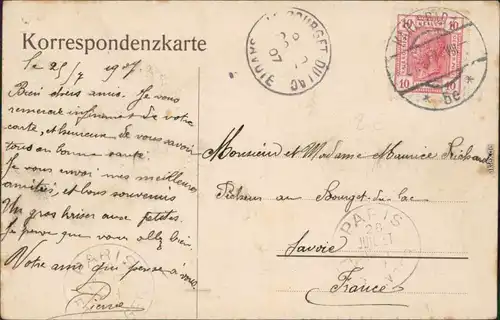 Korrespondenzkarte
le 25/7 1907
Bien chers amis. Je vous
remercie infiniment de votre
carte, et heureux de vous savoir
tous en bonne santé.
Je vous envoi mes meilleures
amitiés, et bons souvenirs
Un gros baiser aux petites.
Je pense que vous allez bien
Votre ami qui pense à vous
Pierre
LE BOURGET DU LAC
SAVOIE
07
10 10
10 10
* 6e *
Monsieur et Madame Maurice Richard
Pêcheur au Bourget-du-Lac
Savoie
France
PARIS
26
JUIL
PARIS